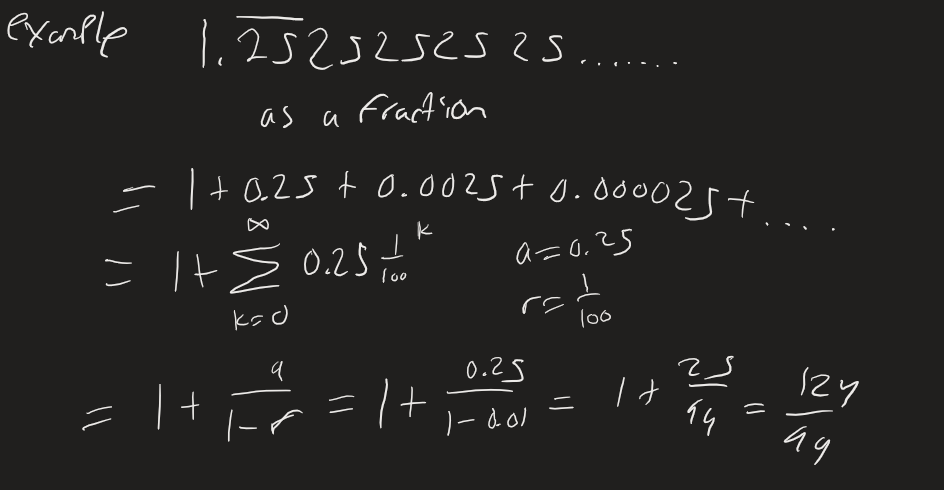 example 1.2̅5̅25252525.......
as a fraction
= 1 + 0.25 + 0.0025 + 0.000025 + .....
= 1 + ∑_{k=0}^{∞} 0.25 1/100^k a = 0.25
r = 1/100
= 1 + a/(1-r) = 1 + 0.25/(1-0.01) = 1 + 25/99 = 124/99